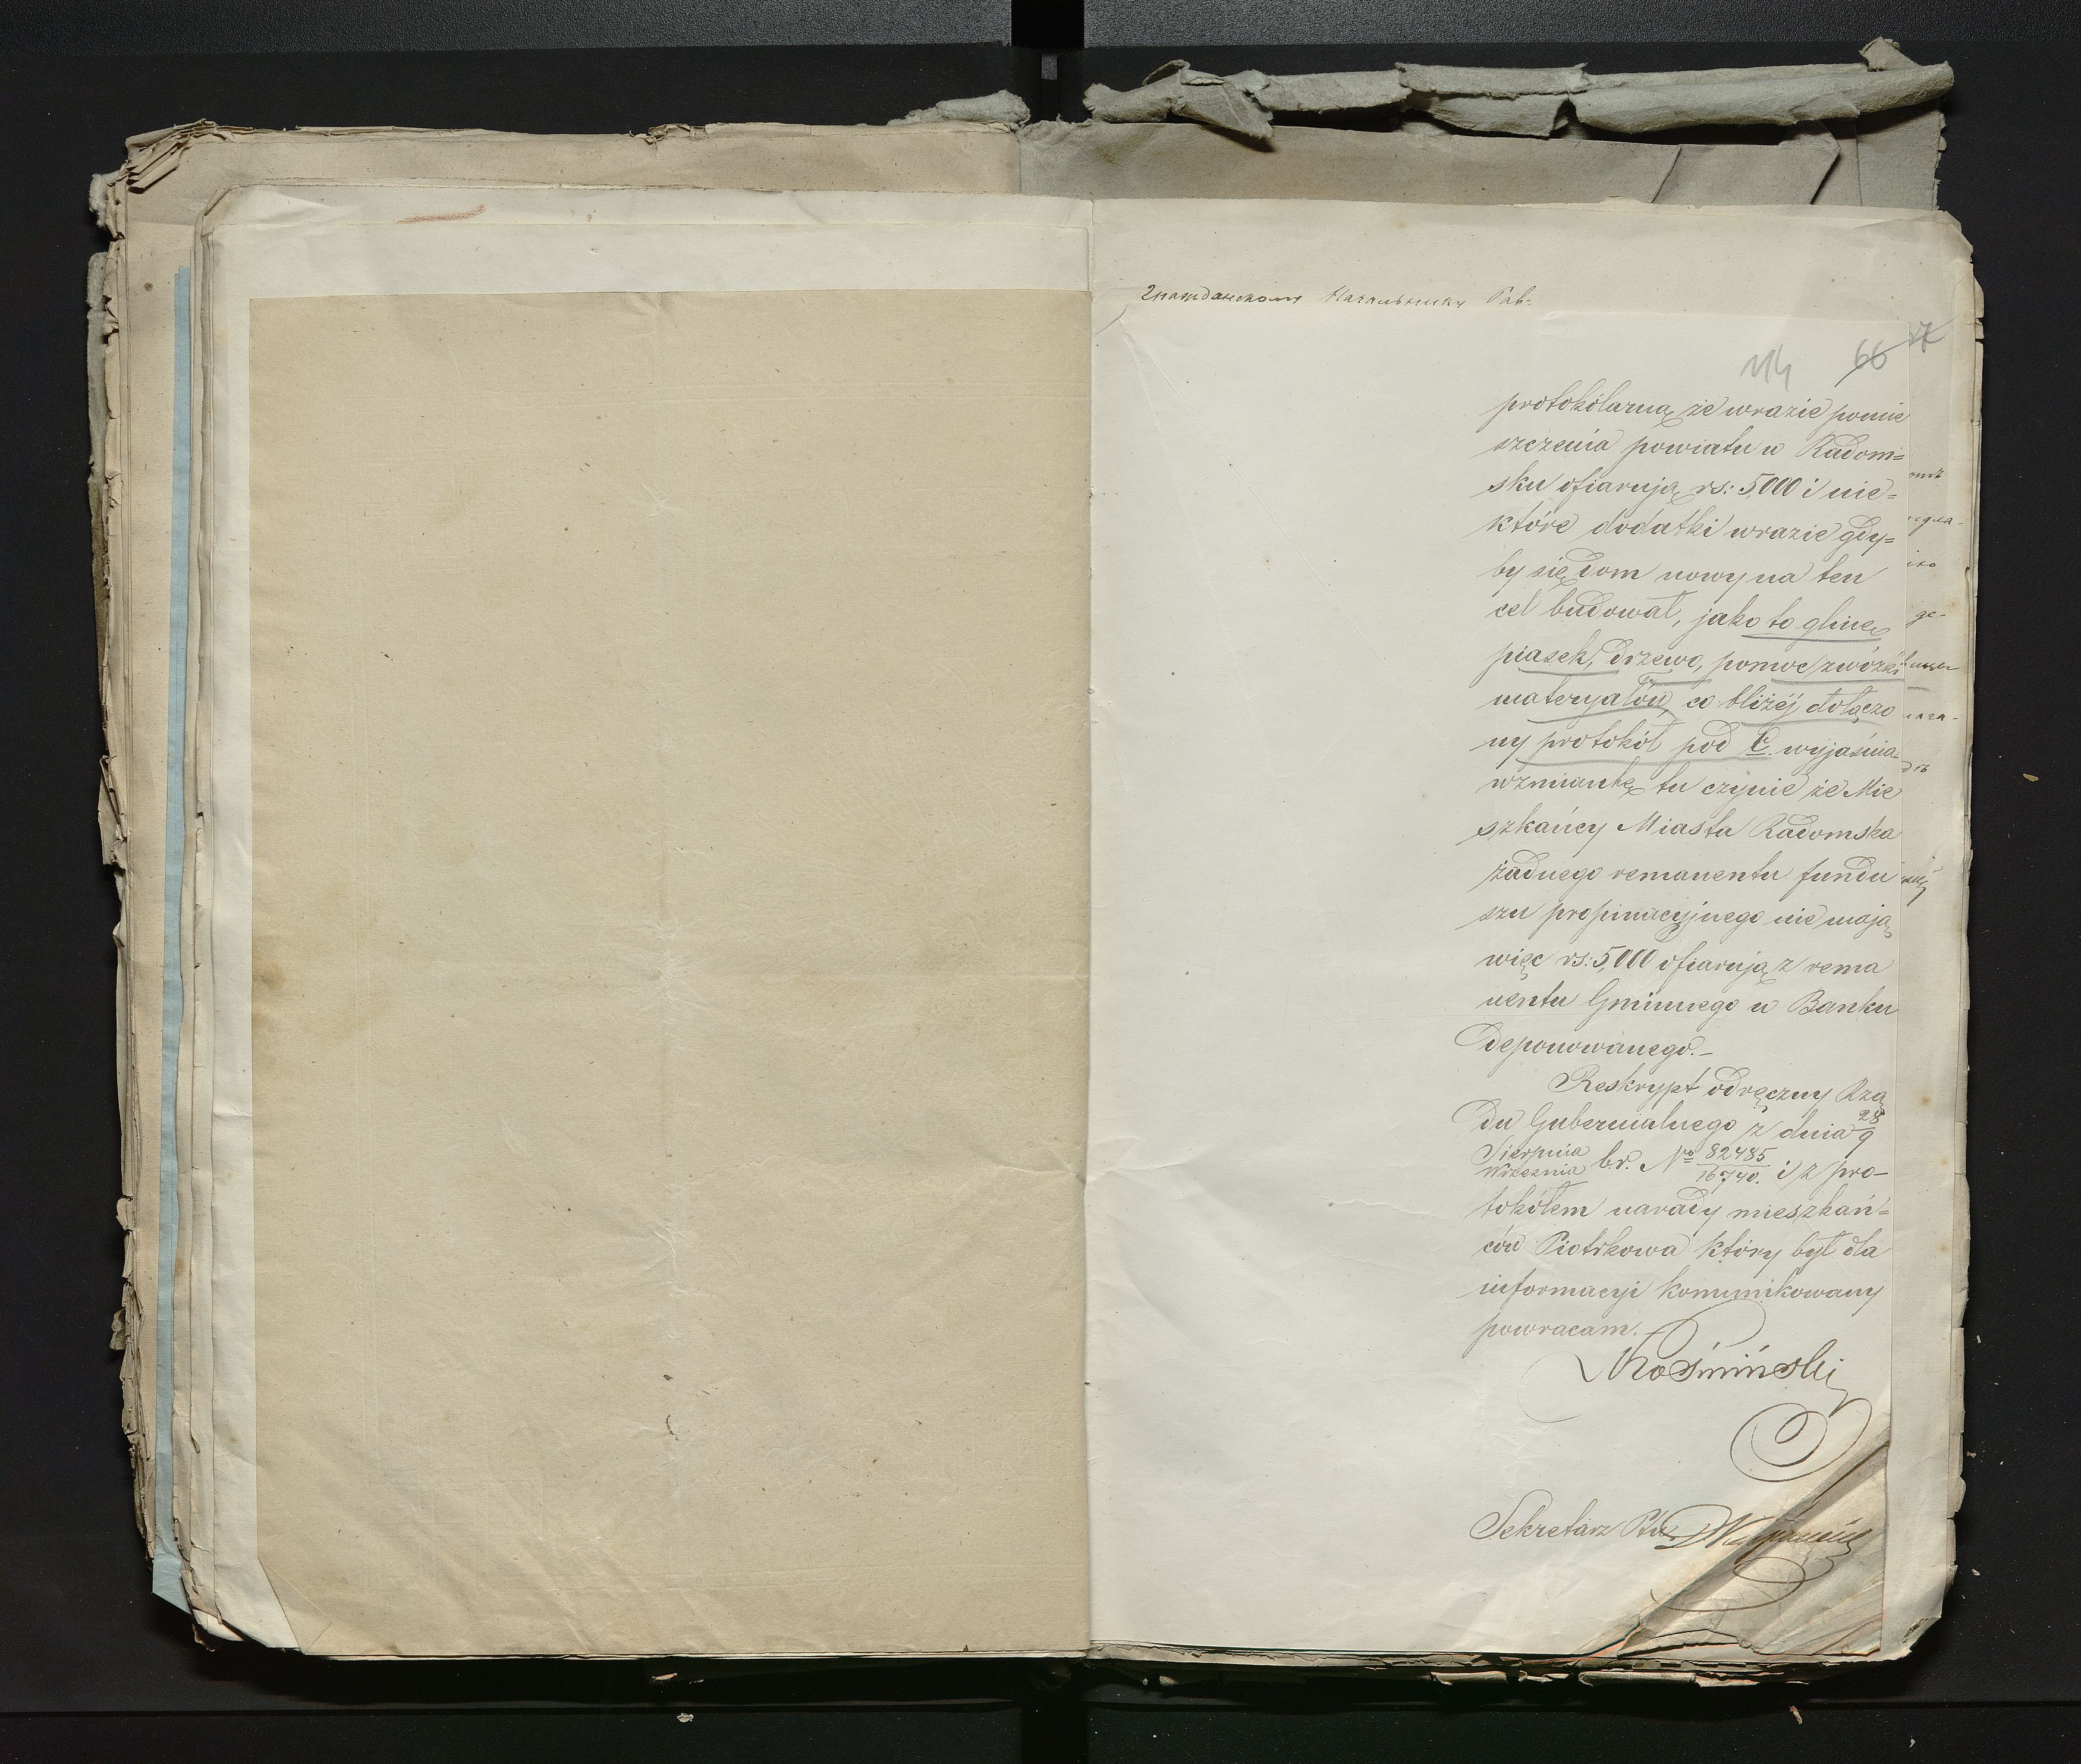 Гражданскому Начальнику Рав-
114 66 17
protokólarną, że wrazie pomie
szczenia powiatu w Radom=
sku ofiarują rs: 5,000 i nie=
które dodatki wrazie gdy=
by się dom nowy na ten
cel budował, jako to glinę,
piasek, drzewo, pomoc zwózki
materyałów, co bliżéj dołączo
ny protokół pod C. wyjaśnia-
wzmiankę tu czynię że Mie
szkańcy Miasta Radomska
żadnego remanentu fundu
szu propinacyjnego nie mają
więc rs: 5,000 ofiarują z rema
nentu Gminnego w Banku
deponowanego.-
Reskrypt odręczny Rzą
du Gubernialnego z dnia 28/9
Sierpnia/Września b.r. No 82485/16740. i z pro-
tokółem narady mieszkań=
ców Piotrkowa który był dla
informacyi komunikowany
powracam.
Kośmiński
Sekretarz Ptu